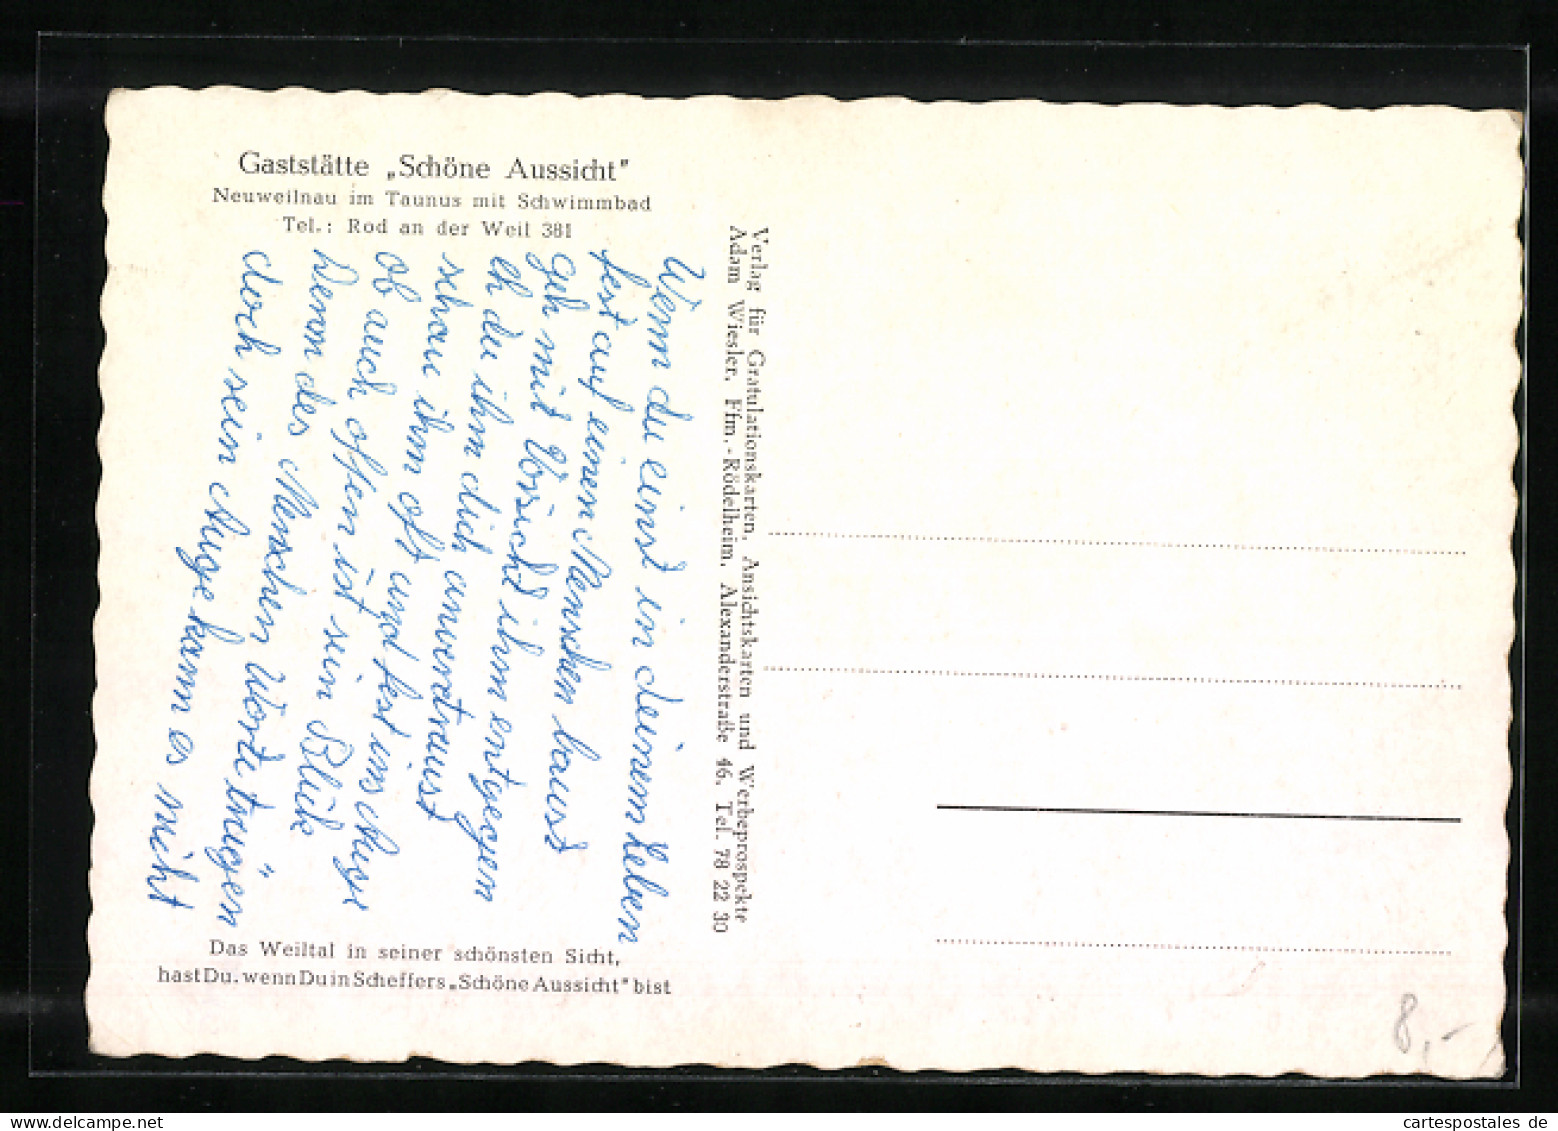 Gaststätte „Schöne Aussicht"
Neuweilnau im Taunus mit Schwimmbad
Tel.: Rod an der Weil 381
Wenn du einst in deinem Leben
fest auf einen Menschen baust
geh mit Vorsicht ihm entgegen
eh du ihm dich anvertraust
schau ihm oft und fest ins Auge
ob auch offen ist sein Blick
Denn des Menschen Worte trügen
doch sein Auge kann es nicht
Das Weiltal in seiner schönsten Sicht,
hast Du, wenn Du in Scheffers „Schöne Aussicht" bist
Verlag für Gratulationskarten, Ansichtskarten und Werbeprospekte
Adam Wiesler, Ffm.-Rödelheim, Alexanderstraße 46, Tel. 78 22 30
8,-
cartespostales de